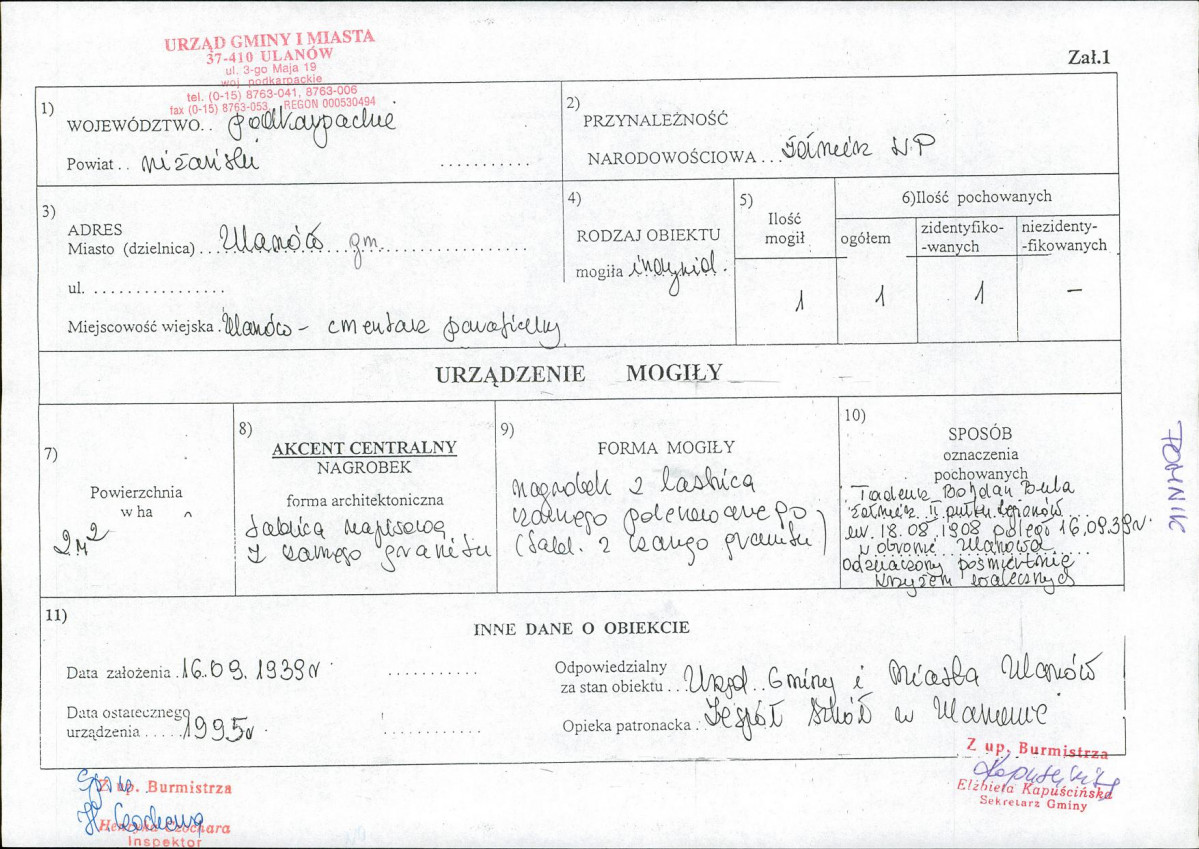 URZĄD GMINY I MIASTA
37-410 ULANÓW
ul. 3-go Maja 19
woj. podkarpackie
tel. (0-15) 8763-041, 8763-006
fax (0-15) 8763-053, REGON 000530494
Zał.1
1)
WOJEWÓDZTWO.. podkarpackie
Powiat.. niżański ...........
2)
PRZYNALEŻNOŚĆ
NARODOWOŚCIOWA ... żołnierz WP
3)
ADRES
Miasto (dzielnica).... Ulanów gm. ...............
ul. ................
Miejscowość wiejska . Ulanów - cmentarz parafialny
4)
RODZAJ OBIEKTU
mogiła indywid.
5)
Ilość
mogił
1
6)Ilość pochowanych
ogółem
1
zidentyfiko-
-wanych
1
niezidenty-
-fikowanych
–
URZĄDZENIE MOGIŁY
7)
Powierzchnia
w ha
2m2
8)
AKCENT CENTRALNY
NAGROBEK
forma architektoniczna
tablica napisową
z czarnego granitu
9)
FORMA MOGIŁY
nagrobek z lastrica
szarego polerowanego
10)
SPOSÓB
oznaczenia
pochowanych
Tadeusz Bohdan Buła
żołnierz II pułku Legionów
ur. 18.08.1908 poległ 16.09.39r.
w obronie Ulanowa
odznaczony pośmiertnie
krzyżem walecznych
POMNIK
11)
INNE DANE O OBIEKCIE
Data założenia . 16.09.1939r. ...........
Data ostatecznego
urządzenia ..... 1995r. ............
Odpowiedzialny
za stan obiektu ... Urząd Gminy i Miasta Ulanów
Opieka patronacka . Zespół Szkół w Ulanowie
Z up. Burmistrza
Elżbieta Kapuścińska
Sekretarz Gminy
Z up. Burmistrza
Inspektor